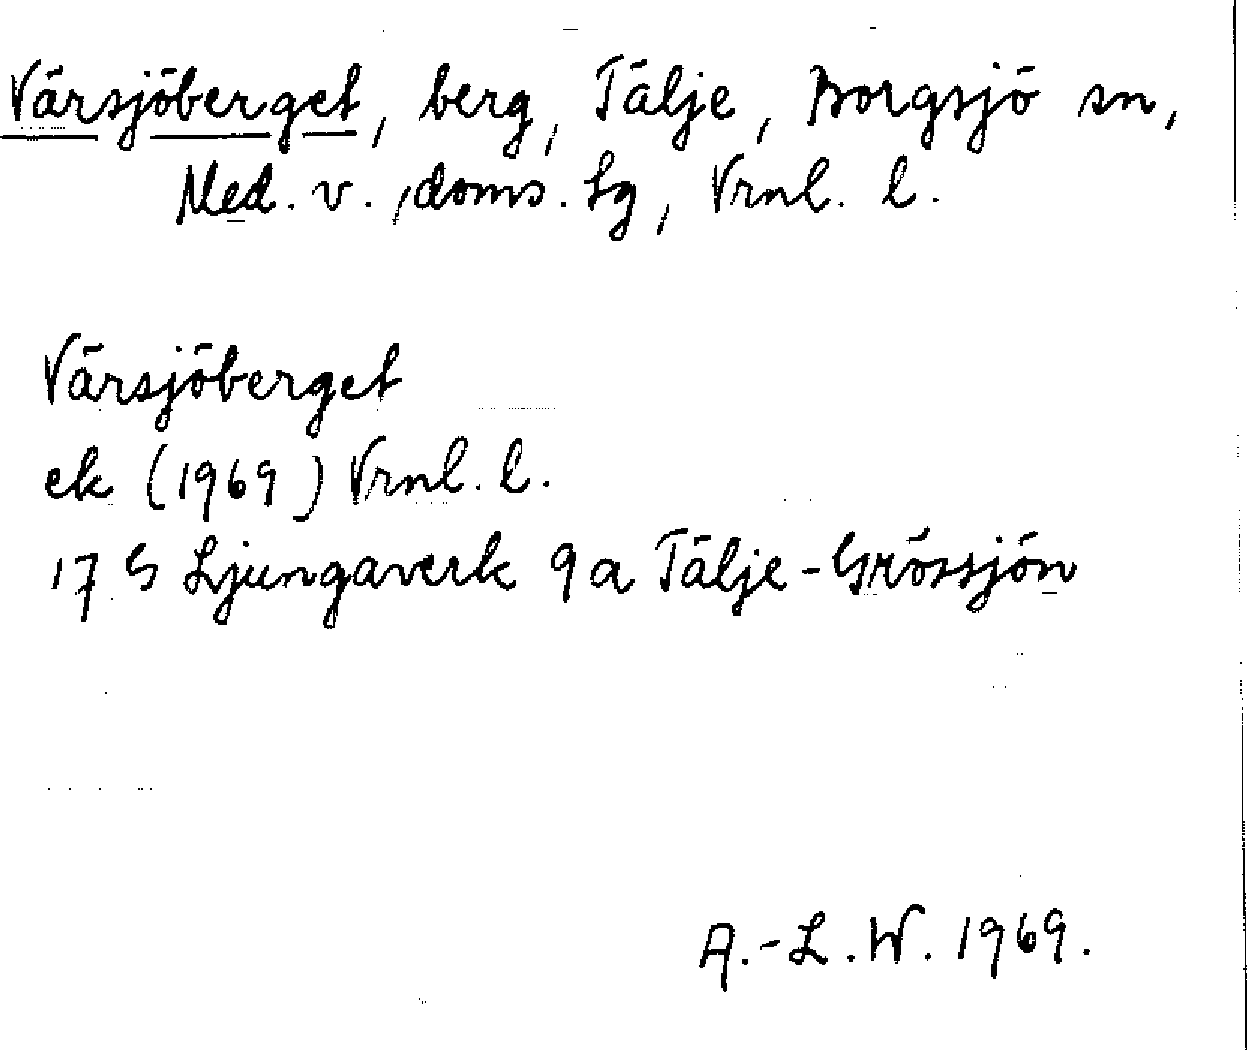 Värsjöberget, berg, Tälje, Borgsjö sn,
Med. v., doms. tg, Vrnl. l.
Värsjöberget
ek (1969) Vrnl. l.
17 G Ljungaverk 9a Tälje-Grössjön
A.-L.W. 1969.